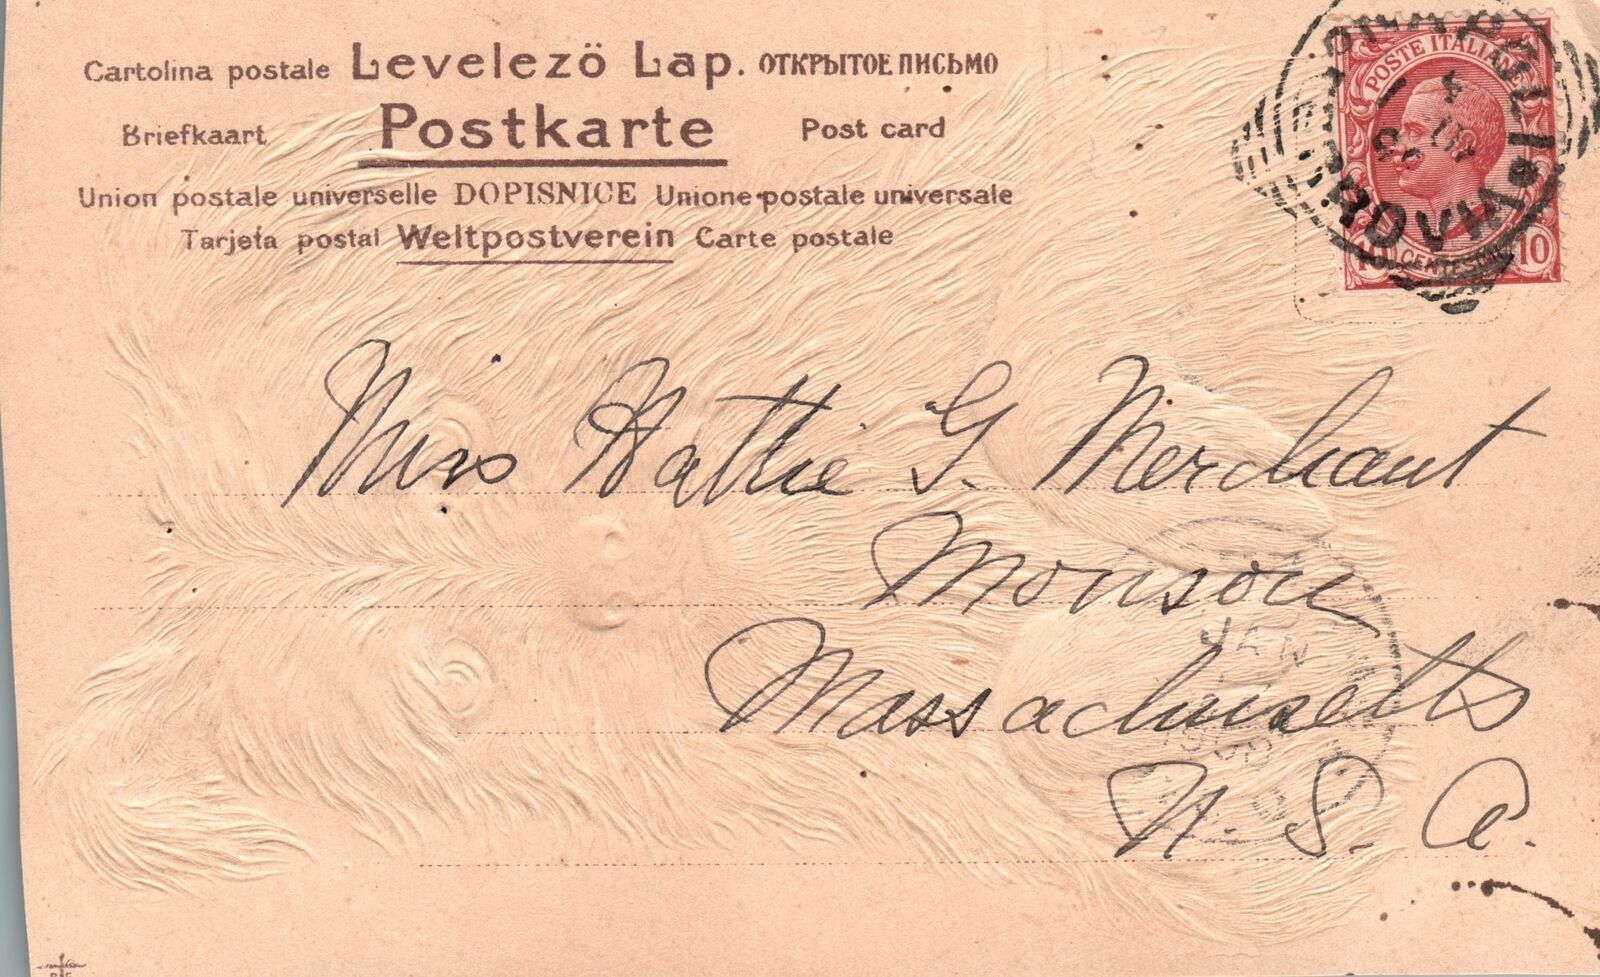 Cartolina postale Levelező Lap. ОТКРЫТОЕ ПИСЬМО
Briefkaart Postkarte Post card
Union postale universelle DOPISNICE Unione postale universale
Tarjeta postal Weltpostverein Carte postale
POSTE ITALIANE
10 CENTESIMI 10
Miss Hattie G. Merchant
Monson
Massachusetts
U. S. A.
JAN